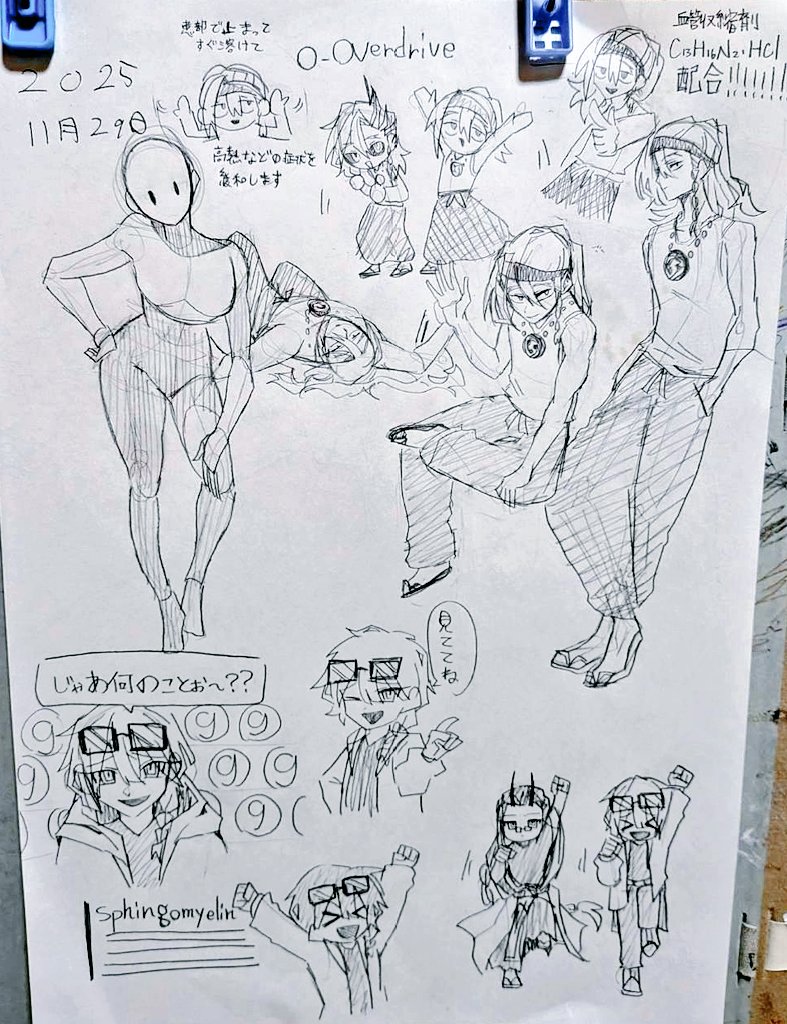 2025
11月29日
患部で止まって
すぐ溶けて
O-Overdrive
血管収縮剤
C13H16N2・HCl
配合!!!!!!
高熱などの症状を
緩和します
見ててね
じゃあ何のことぉ〜??
9 9
9 9 9
9 9 9
9 9
sphingomyelin